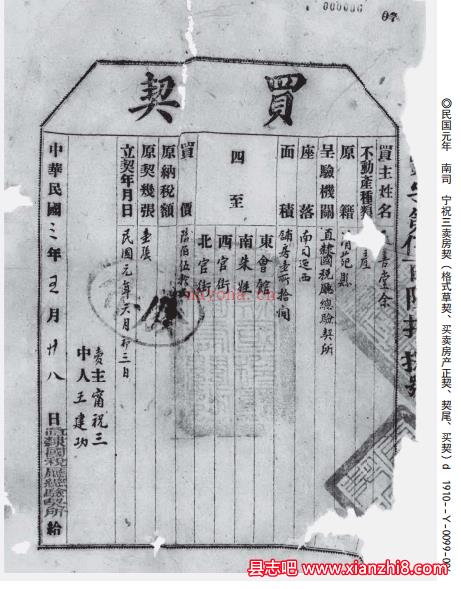 000000
07
買契
買主姓名 善堂余
不動產種類
原籍
呈驗機關 直隸國税廳總驗契所
座落 南司逕西
面積 鋪房壹所拾間
四至
東會館
南朱姓
西官街
北官街
買價
原納税額
原契幾張 壹張
立契年月日 民國元年六月初三日
賣主甯祝三
中人王建功
中華民國三年五月廿八日直隸國税廳總驗契所給
◎民国元年 南司 宁祝三卖房契（格式草契、买卖房产正契、契尾、买契）d 1910--Y-0099-07
mayona.cn
县志吧 www.xianzhi8.com